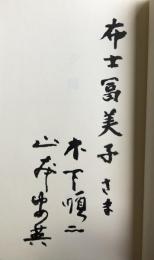 布士冨美子さま
木下順二
山本安英